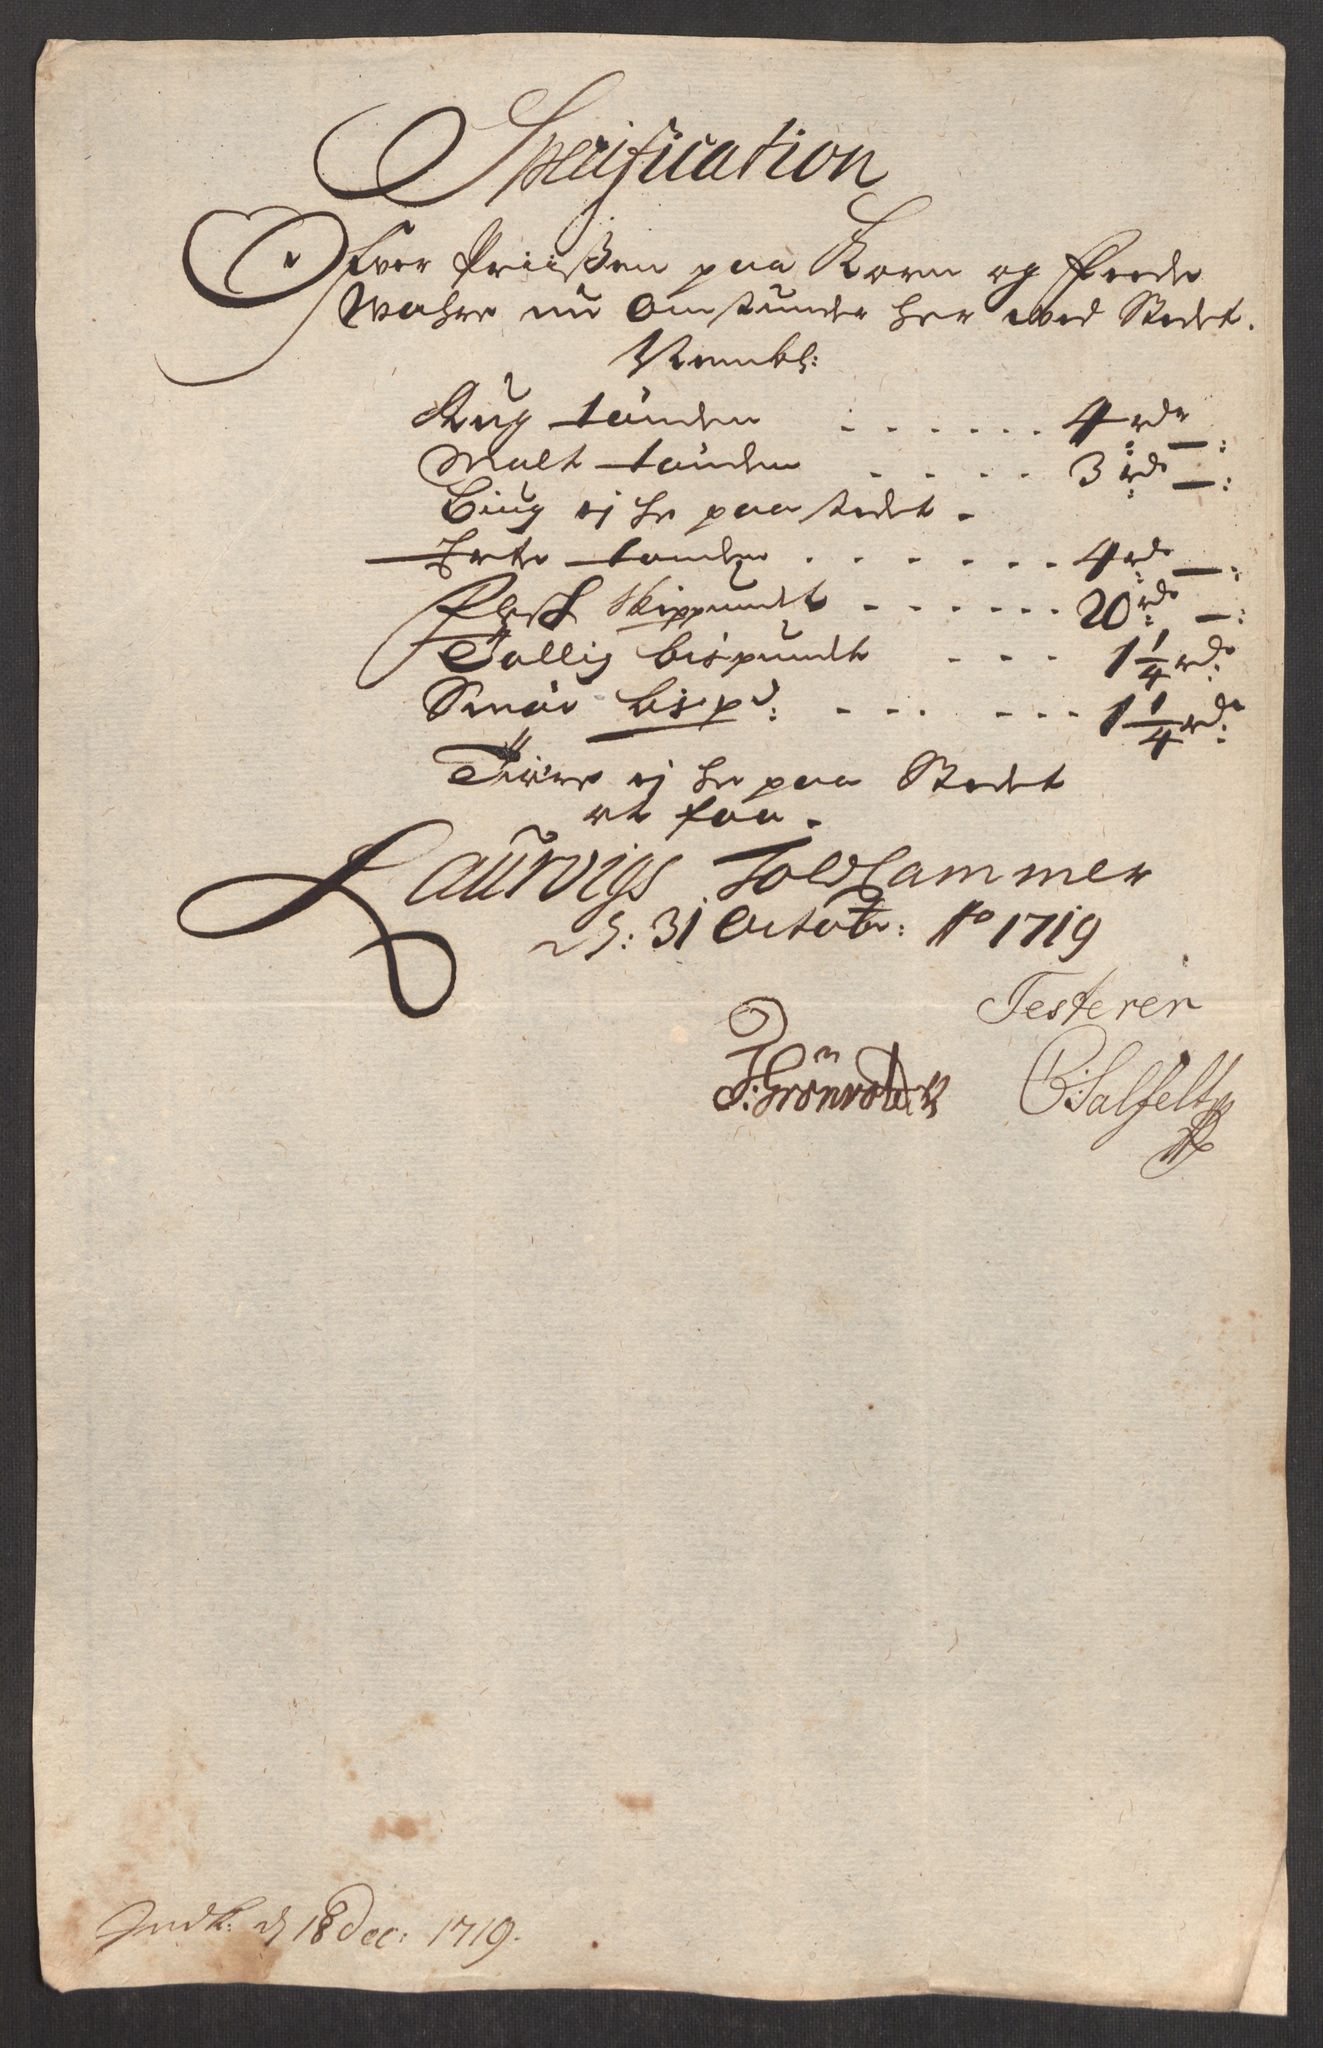 Specification
Ofver Priisen paa Korn og Feede
Wahre nu Omstunder her wed Stedet.
Nembl:
Rug tønden . . . . . . 4 rdr —:
Malt tønden . . . . 3 rdr —:
Biug ej he paa stedet -
Erter tønden . . . . . . 4 rdr —:
Flesk Skippundt - - - - - - 20 rdr —:
Tallig bispundt - - - 1 1/4 rdr:
Smør bispd: - - - - - - 1 1/4 rdr:
Tiære ej he paa Stedet
at faa.
Laurvigs Toldkammer
d: 31 Octobr: Ao 1719
Testerer
J: Grönvold C: Salfelt
Indk: d 18 Dec: 1719.